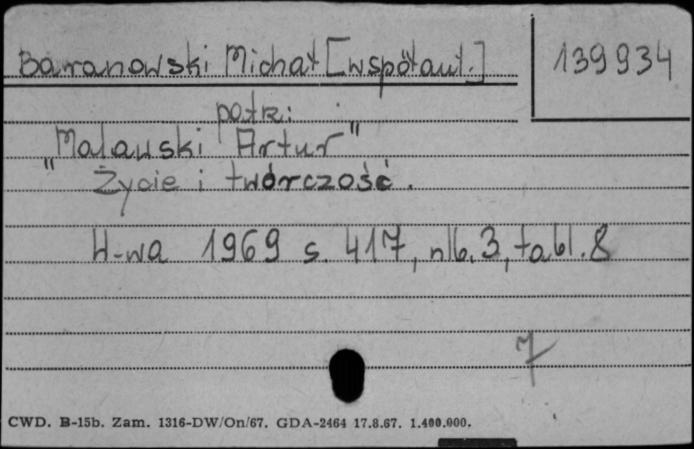 Baranowski Michał [współaut.]
139934
patrz:
"Malawski Artur"
Życie i twórczość.
W-wa 1969 s. 417, nlb. 3, tabl. 8
7
CWD. B-15b. Zam. 1316-DW/On/67. GDA-2464 17.8.67. 1.400.000.